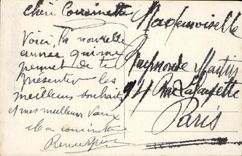 Chère Cousinette
Voici la nouvelle
année qui me
permet de te
présenter les
meilleurs souhaits
et mes meilleurs vœux
Mademoiselle
Raymonde Martin
94 Rue Lafayette
Paris